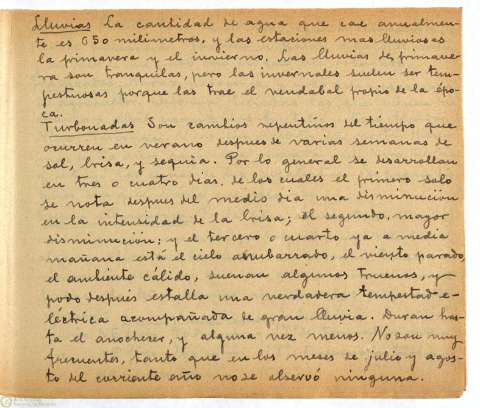 Lluvias La cantidad de agua que cae anualmen-
te es 650 milimetros, y las estaciones mas lluviosas
la primavera y el invierno. Las lluvias de primave-
ra son tranquilas, pero las invernales suelen ser tem-
pestuosas porque las trae el vendabal propio de la épo-
ca.
Turbonadas Son cambios repentinos del tiempo que
ocurren en verano despues de varias semanas de
sol, brisa, y sequia. Por lo general se desarrollan
en tres o cuatro dias, de los cuales el primero solo
se nota despues del medio dia una disminución
en la intensidad de la brisa; el segundo, mayor
disminucion; y el tercero o cuarto ya a media
mañana está el cielo achubarrado, el viento parado,
el ambiente cálido, suenan algunos truenos, y
poco después estalla una verdadera tempestad e-
léctrica acompañada de gran lluvia. Duran has-
ta el anochecer, y alguna vez menos. No son muy
frecuentes, tanto que en los meses de julio y agos-
to del corriente año no se observó ninguna.